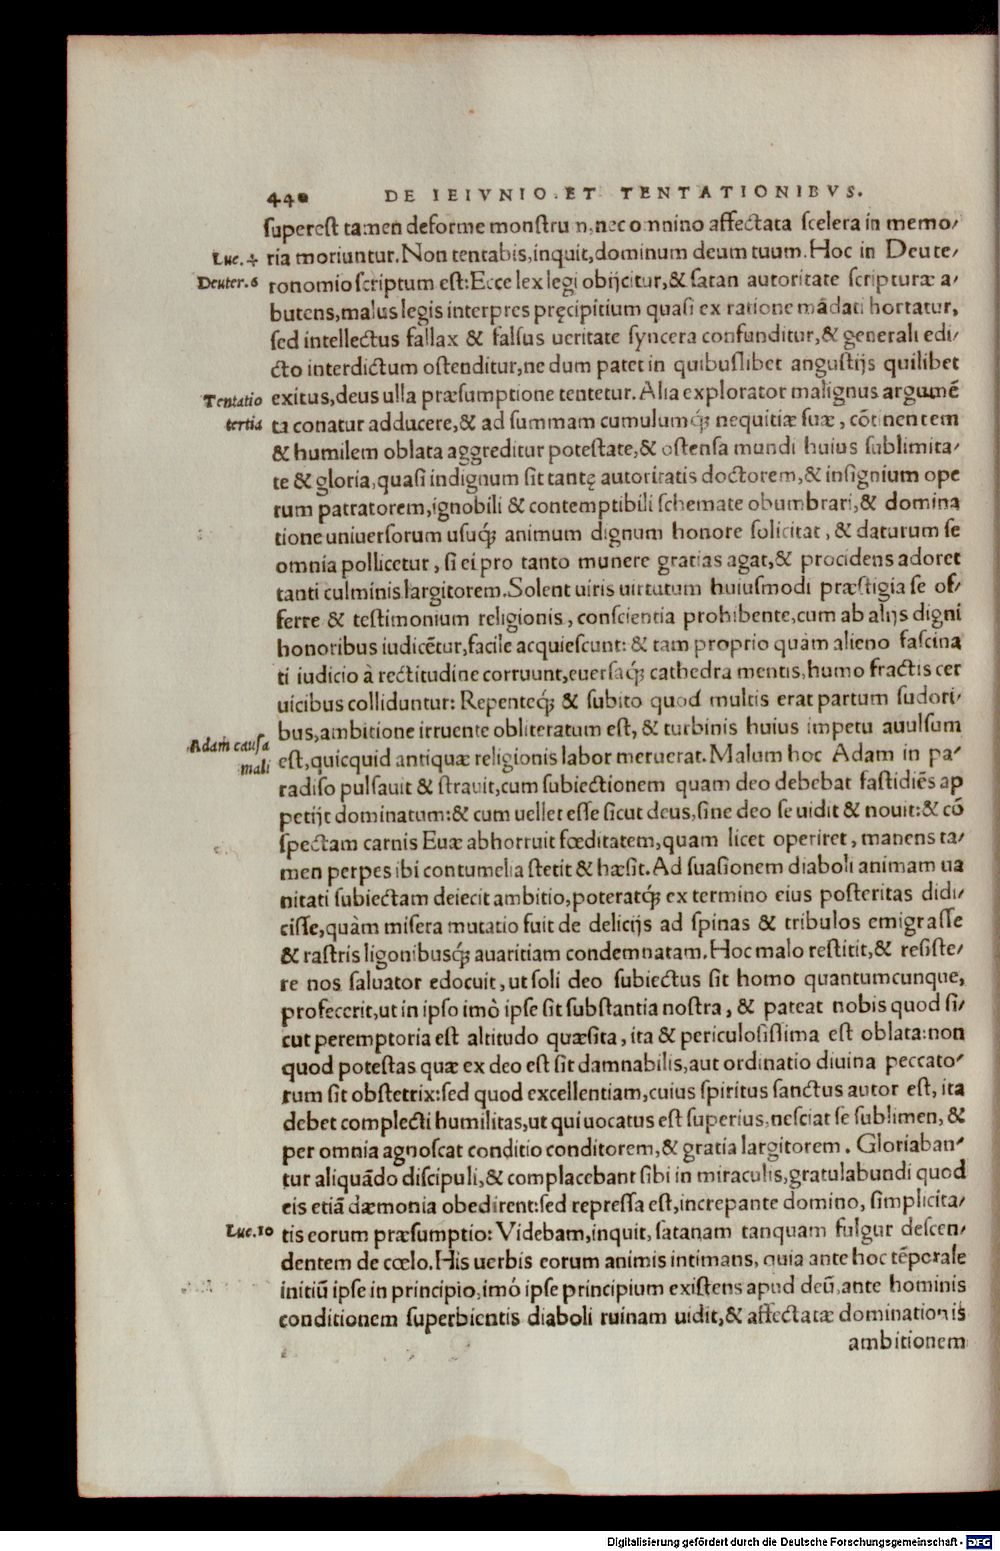 440 DE IEIVNIO ET TENTATIONIBVS.
superest tamen deforme monstrum, nec omnino affectata scelera in memo/
Luc. 4 ria moriuntur. Non tentabis, inquit, dominum deum tuum. Hoc in Deute/
Deuter. 6 ronomio scriptum est: Ecce lex legi obijcitur, & satan autoritate scripturæ a/
butens, malus legis interpres pręcipitium quasi ex ratione mādati hortatur,
sed intellectus fallax & falsus ueritate syncera confunditur, & generali edi/
cto interdictum ostenditur, ne dum patet in quibuslibet angustijs quilibet
Tentatio exitus, deus ulla præsumptione tentetur. Alia explorator malignus argumē
tertia ta conatur adducere, & ad summam cumulumq́; nequitiæ suæ, cōtinentem
& humilem oblata aggreditur potestate, & ostensa mundi huius sublimita/
te & gloria, quasi indignum sit tantę autoritatis doctorem, & insignium ope
rum patratorem, ignobili & contemptibili schemate obumbrari, & domina
tione uniuersorum usuq́; animum dignum honore solicitat, & daturum se
omnia pollicetur, si ei pro tanto munere gratias agat, & procidens adoret
tanti culminis largitorem. Solent uiris uirtutum huiusmodi præstigia se of/
ferre & testimonium religionis, conscientia prohibente, cum ab alijs digni
honoribus iudicētur, facile acquiescunt: & tam proprio quàm alieno fascina
ti iudicio à rectitudine corruunt, euersaq́; cathedra mentis, humo fractis cer
uicibus colliduntur: Repenteq́; & subito quod multis erat partum sudori/
bus, ambitione irruente obliteratum est, & turbinis huius impetu auulsum
Adam causa mali est, quicquid antiquæ religionis labor meruerat. Malum hoc Adam in pa/
radiso pulsauit & strauit, cum subiectionem quam deo debebat fastidiēs ap
petijt dominatum: & cum uellet esse sicut deus, sine deo se uidit & nouit: & cō
spectam carnis Euæ abhorruit fœditatem, quam licet operiret, manens ta/
men perpes ibi contumelia stetit & hæsit. Ad suasionem diaboli animam ua
nitati subiectam deiecit ambitio, poteratq́; ex termino eius posteritas didi/
cisse, quàm misera mutatio fuit de delicijs ad spinas & tribulos emigrasse
& rastris ligonibusq́; auaritiam condemnatam. Hoc malo restitit, & resiste/
re nos saluator edocuit, ut soli deo subiectus sit homo quantumcunque,
profecerit, ut in ipso imò ipse sit substantia nostra, & pateat nobis quod si/
cut peremptoria est altitudo quæsita, ita & periculosissima est oblata: non
quod potestas quæ ex deo est sit damnabilis, aut ordinatio diuina peccato/
rum sit obstetrix: sed quod excellentiam, cuius spiritus sanctus autor est, ita
debet complecti humilitas, ut qui uocatus est superius, nesciat se sublimen, &
per omnia agnoscat conditio conditorem, & gratia largitorem. Gloriaban/
tur aliquādo discipuli, & complacebant sibi in miraculis, gratulabundi quod
eis etiā dæmonia obedirent: sed repressa est, increpante domino, simplicita/
Luc. 10 tis eorum præsumptio: Videbam, inquit, satanam tanquam fulgur descen/
dentem de cœlo. His uerbis eorum animis intimans, quia ante hoc tēporale
initiū ipse in principio, imó ipse principium existens apud deū, ante hominis
conditionem superbientis diaboli ruinam uidit, & affectatæ dominationis
ambitionem
Digitalisierung gefördert durch die Deutsche Forschungsgemeinschaft - DFG